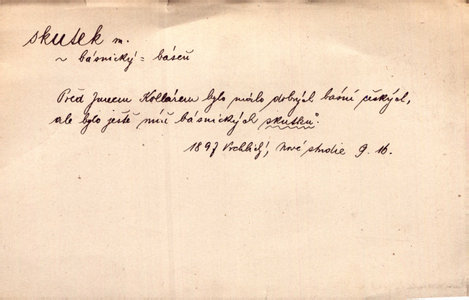 skutek m.
~ básnický = báseň
Před Janem Kollárem bylo málo dobrých básní českých,
ale bylo ještě míň básnických skutků".
1897 Vrchlický, Nové studie 9. 16.